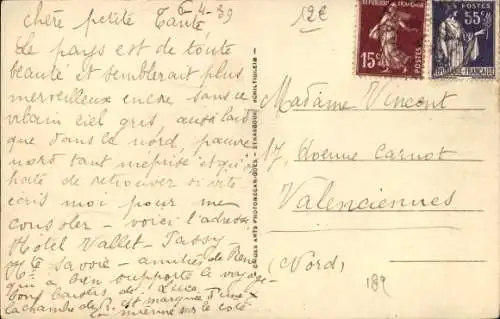 6-4-39
chère petite Tante
Le pays est de toute
beauté et semblerait plus
merveilleux encore sans ce
vilain ciel gris aussi laid
que dans le nord, pauvre
nord tant méprisé et qu'il
hate de retrouver si vite
écris moi pour me
consoler - voici l'adresse
Hôtel Vallet - Passy
Hte Savoie - amitiés de René
qui a bien supporté le voyage
bons baisers de Luce
la chambre de R. est marquée d'une x
la mienne sur le côté
12€
RÉPUBLIQUE FRANÇAISE
15c
POSTES
POSTES
55c
RÉPUBLIQUE FRANÇAISE
Madame Vincent
17, Avenue Carnot
Valenciennes
(Nord)
189
CIE DES ARTS PHOTOMÉCANIQUES - STRASBOURG - SCHILTIGHEIM